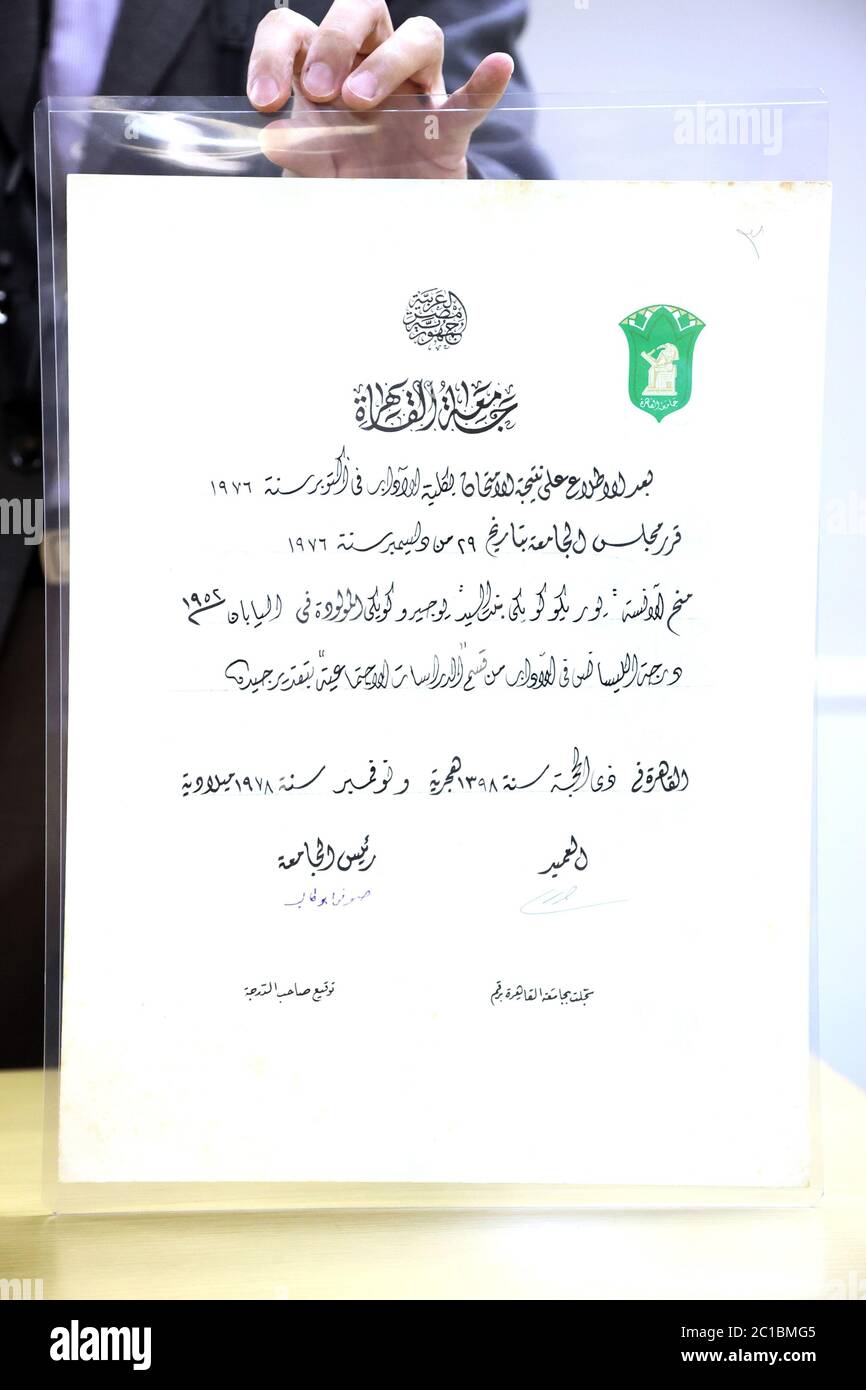 ٣
جمهورية مصر العربية
جامعة القاهرة
جامعة القاهرة
بعد الاطلاع على نتيجة الامتحان بكلية الآداب فى أكتوبر سنة ١٩٧٦
قرر مجلس الجامعة بتاريخ ٢٩ من ديسمبر سنة ١٩٧٦
منح الآنسة / يوريكو كويكى بنت السيد / يوجيرو كويكى المولودة فى اليابان ١٩٥٢
درجة الليسانس فى الآداب من قسم "الدراسات الاجتماعية" بتقدير جيد
القاهرة فى ذى الحجة سنة ١٣٩٨ هجرية و نوفمبر سنة ١٩٧٨ ميلادية
العميد رئيس الجامعة
صوفى أبو طالب
سجلت بجامعة القاهرة برقم توقيع صاحب الدرجة
alamy
a
alamy
Image ID: 2C1BMG5
www.alamy.com